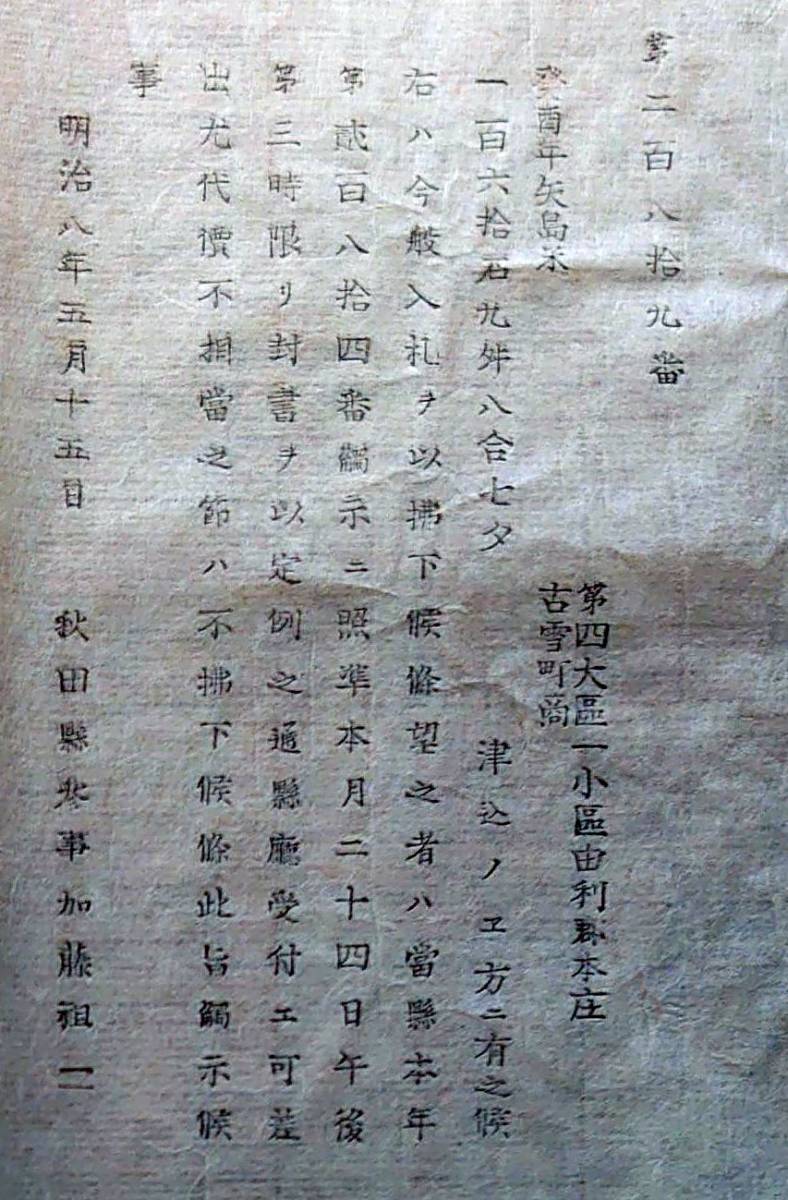 第二百八拾九番
癸酉年矢島米
第四大區一小區由利郡本庄
古雪町商
一百六拾石九舛八合七夕
津込ノヱ方ニ有之候
右ハ今般入札ヲ以拂下候條望之者ハ當縣本年
第貳百八拾四番觸示ニ照準本月二十四日午後
第三時限リ封書ヲ以定例之通縣廳受付エ可差
出尤代價不相當之節ハ不拂下候條此旨觸示候
事
明治八年五月十五日
秋田縣參事加藤祖一